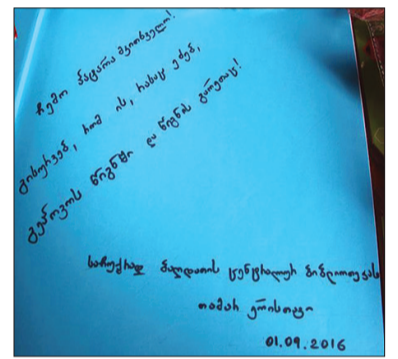 ჩემო პატარა მკითხველო!
გისურვებ, რომ ის, რასაც ეძებ,
გეპოვოს წიგნში და წიგნს გარეთაც!
საჩუქრად ბაღდათის ცენტრალურ ბიბლიოთეკას
თამარ ერისთავი
01.09.2016